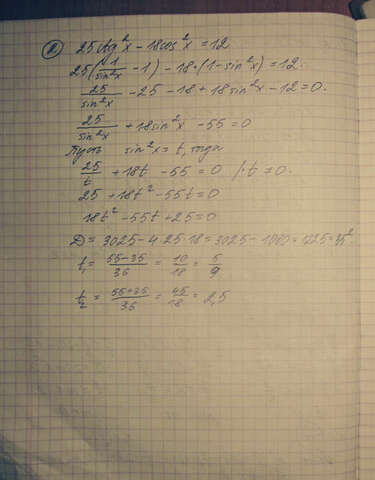 ② 25ctg²x - 18cos²x = 12
25(1/sin²x - 1) - 18·(1-sin²x) = 12
25/sin²x - 25 - 18 + 18sin²x - 12 = 0.
25/sin²x + 18sin²x - 55 = 0
Пусть sin²x = t, тогда
25/t + 18t - 55 = 0 /·t ≠ 0.
25 + 18t² - 55t = 0
18t² - 55t + 25 = 0
D = 3025 - 4·25·18 = 3025 - 1800 = 1225 = 35²
t₁ = 55-35/36 = 10/18 = 5/9
t₂ = 55+35/36 = 45/18 = 2,5